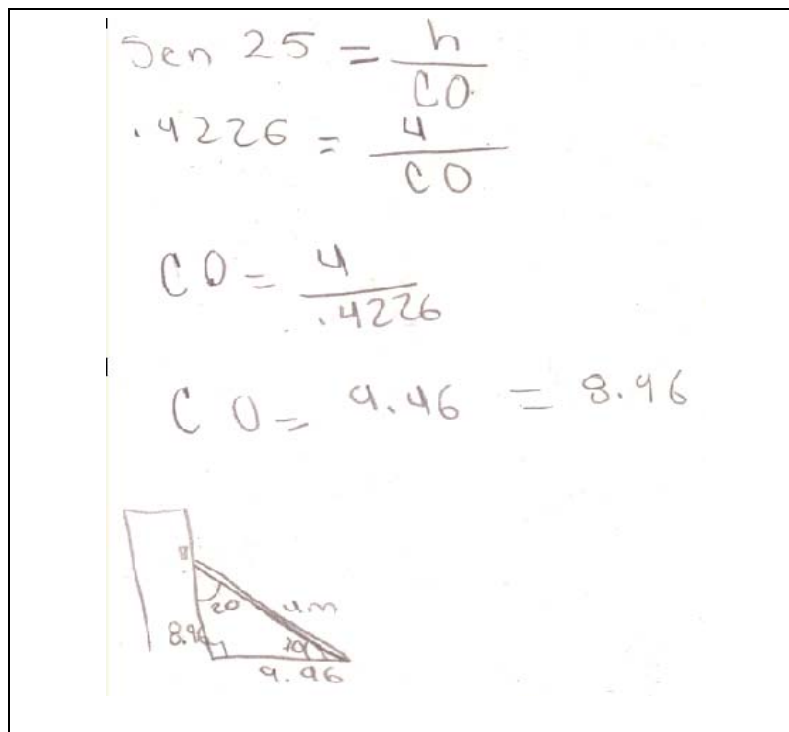 Sen 25 = h / CO
.4226 = 4 / CO
CO = 4 / .4226
CO = 9.46 = 8.96
20
4m
8.96
9.96